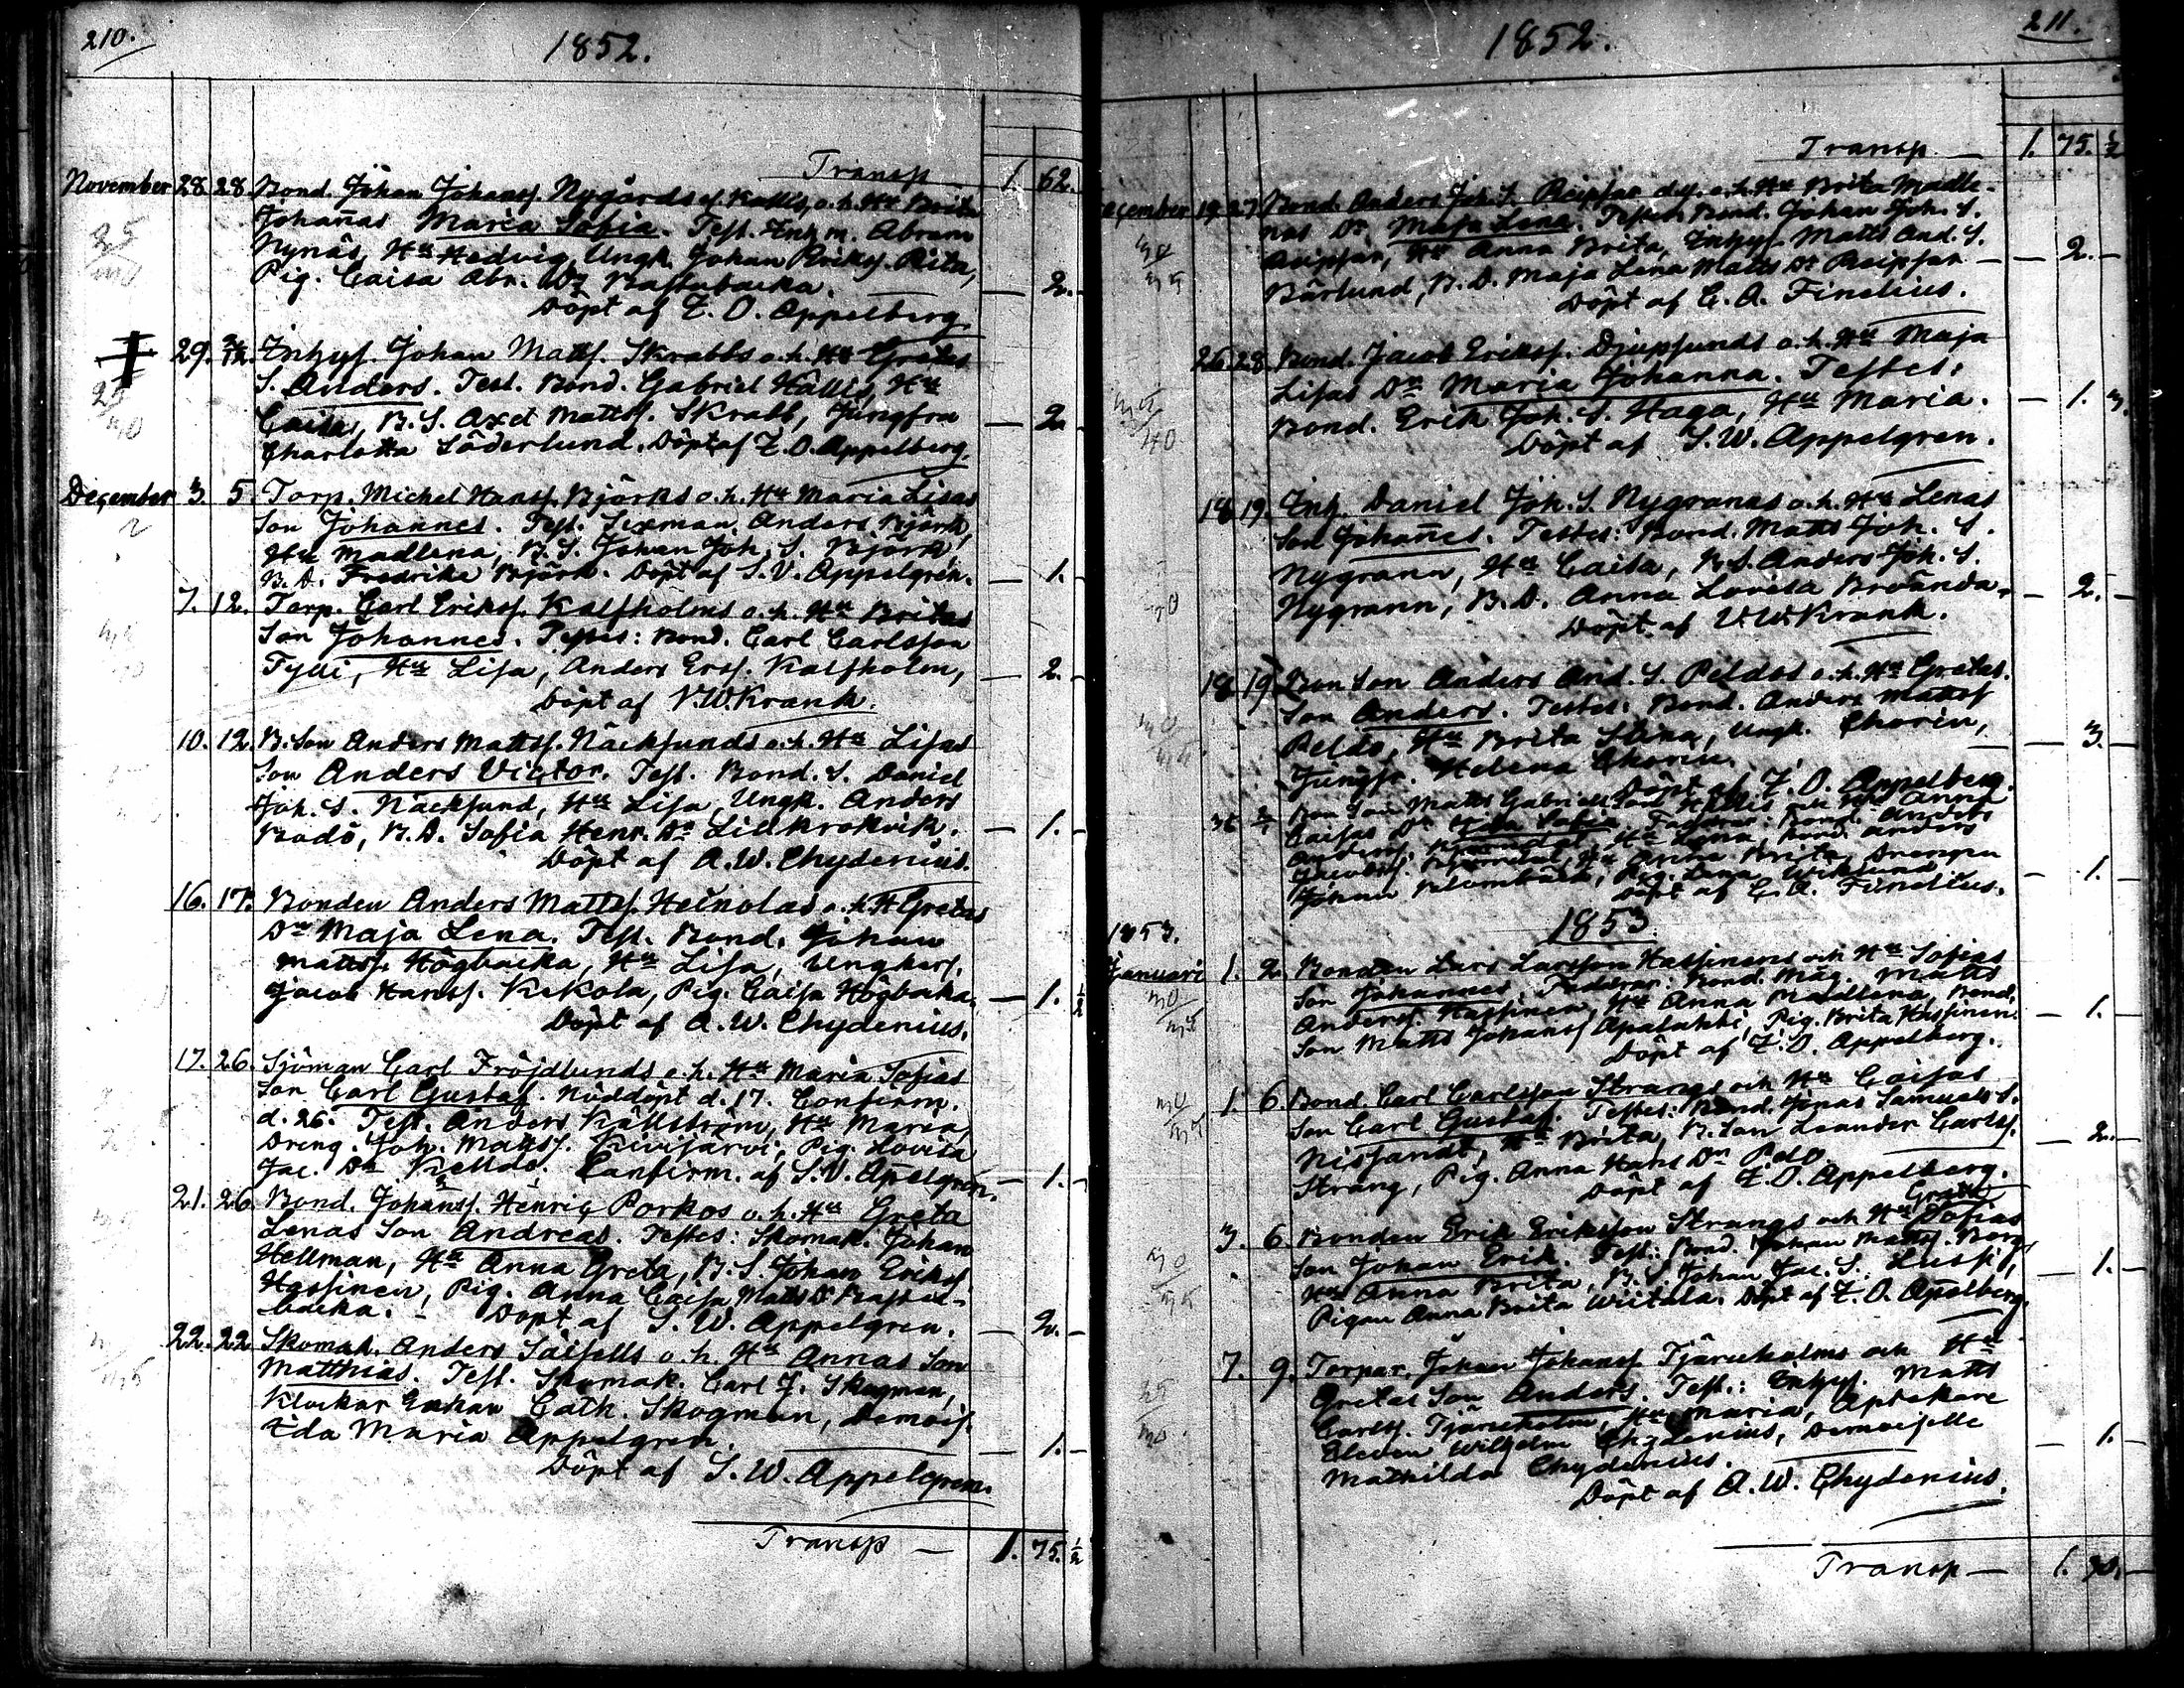 210.
1852.
Transp 1. 62.
November 28. 28. Bond. Johan Johans. Nygårds o. h. Hu Brita
Johañas Maria Sofia. Test. Inh. m. Abram
Nynäs, Hu Hedvig, Ungk. Johan Eriks. Rita,
Pig. Caisa Abr. Dr Bastubacka. — 2. —
Döpt af Z. O. Appelberg.
29. Inhys. Johan Matts. Skrabbs o. h. Hu Gretas
S. Anders. Test. Bond. Gabriel Källis, Hu
Caisa, B. S. Axel Matts. Skrabb, Jungfru — 2.
Charlotta Söderlund. Döpt af Z. O. Appelberg.
December 3. 5. Torp. Michel Hans. Björks o. h. Hu Maria Lisas
Son Johannes. Test. Sexman Anders Björk,
Hu Madlena, B. S. Johan Joh. S. Björk,
B. D. Fredrika Björk. Döpt af S. W. Appelgren. — 1. —
7. 12. Torp. Carl Eriks. Kalfholms o. h. Hu Britas
Son Johannes. Testes: Bond. Carl Carlsson
Tylli, Hu Lisa, Anders Ers. Kalfholm, — 2. —
Döpt af V. W. Krank.
10. 12. B. Son Anders Matts. Näcksunds o. h. Hu Lisas
Son Anders Victor. Test. Bond. S. Daniel
Joh. S. Näcksund, Hu Lisa, Ungk. Anders
Bodö, B. D. Sofia Henr. Dr Lillkrokvik. — 1. —
Döpt af A. W. Chydenius.
16. 17. Bonden Anders Matts. Heinolas o. h. H Gretas
Dr Maja Lena. Test. Bond. Johan
Matts. Högbacka, Hu Lisa, Ungkars.
Jacob Hans. Kekola, Pig. Caisa Högbacka. — 1. ½
Döpt af A. W. Chydenius.
17. 26. Sjöman Carl Fröjdlunds o. h. Hu Maria Sofias
Son Carl Gustaf. Nöddöpt d. 17. Confirm.
d. 26. Test. Anders Källström, Hu Maria,
Dreng. Joh. Matts. Kivijärvi, Pig. Lovisa
Jac. Dr Kelldo. Confirm. af S. W. Apelgren. — 1. —
21. 26. Bond. Johans. Henric Porkos o. h. Hu Greta
Lenas Son Andreas. Testes: Skomak. Johan
Hellman, Hu Anna Greta, B. S. Johan Eriks.
Hassinen, Pig. Anna Caisa Matts Dr Bastu-
backa. Döpt af S. W. Appelgren. — 2. —
22. 22. Skomak. Anders Säifells o. h. Hu Annas Son
Matthias. Test. Skomak. Carl J. Skogman,
Klockar Enkan Cath. Skogman, Demois.
Eda Maria Appelgren. — 1. —
Döpt af S. W. Appelgren.
Transp — 1. 75. ½
211.
1852.
Transp — 1. 75. ½
December 19. 27. Bond. Anders Joh. S. Reipsar dys. o. h. Hu Brita Madle-
nas Dr. Maja Lena. Testes: Bond. Johan Joh. S.
Reipsar, Hu Anna Brita, Inhys. Matts And. S.
Bärlund, B. D. Maja Lena Matts Dr Reipsar — 2. —
Döpt af C. A. Finelius.
26. 28. Bond. Jacob Eriks. Djupsunds o. h. Hu Maja
Lisas Dr Maria Johanna. Testes:
Bond. Erik Joh. S. Haga, Hu Maria. — 1. 3.
Döpt af S. W. Appelgren.
18. 19. Inh. Daniel Joh. S. Nygranas o. h. Hu Lenas
Son Johañes. Testes: Bond. Matts Joh. S.
Nygrann, Hu Caisa, B. S. Anders Joh. S.
Nygrann, B. D. Anna Lovisa Brvända. — 2. —
Döpt af V. W. Krank.
18. 19. Bon Son Anders And. S. Peldos o. h. Hu Gretas
Son Anders. Testes: Bond. Anders Matts
Peldo, Hu Brita Stina, Ungk. Chorin,
Jungfr. Helena Chorin. — 3. —
Döpt af Z. O. Appelberg.
Bon Son Matts Gabriels Son Källis och Hu Anna
Caisas Dr Sofia. Faddrar: Bond. Anders
Anders. Hu Lena, Bond. Anders
Jacobs. Hu Anna Brita, Drengen
Johan Blombäck, Pig. Lena Wiklund — 1. —
Döpt af C. A. Finelius.
1853.
1853.
Januari 1. 2. Bonden Lars Larsson Hassinens och Hu Sofias
Son Johannes. Faddrar: Bond. Mag. Matts
Anders. Hassinen, Hu Anna Madlena, Bond.
Son Matts Johans Apalahti, Pig. Brita Hassinen. — 1. —
Döpt af Z. O. Appelberg.
1. 6. Bond. Carl Carlsson Strangs och Hu Caisas
Son Carl Gustaf. Testes: Bond. Jonas Samuels S.
Nissandt, Hu Brita, B. Son Leander Carls.
Strang, Pig. Anna Hans Dr Pelo. — 2. —
Döpt af Z. O. Appelberg.
3. 6. Bonden Erik Eriksson Strangs och Hu Greta Sofias
Son Johan Erik. Test.: Bond. Johan Matts. Borg,
Hu Anna Brita, B. S. Johan Jac. S. Lussi, — 1. —
Pigan Anna Brita Wiitala. Döpt af Z. O. Apelberg.
7. 9. Torpar. Johan Johans Tjäruholms och Hu
Gretas Son Anders. Test.: Inhys. Matts
Carls. Tjäruholm, Hu Maria, Apotekare
Eleven Wilhelm Chydenius, Demoiselle — 1. —
Mathilda Chydenius.
Döpt af A. W. Chydenius.
Transp — 1. 90. —